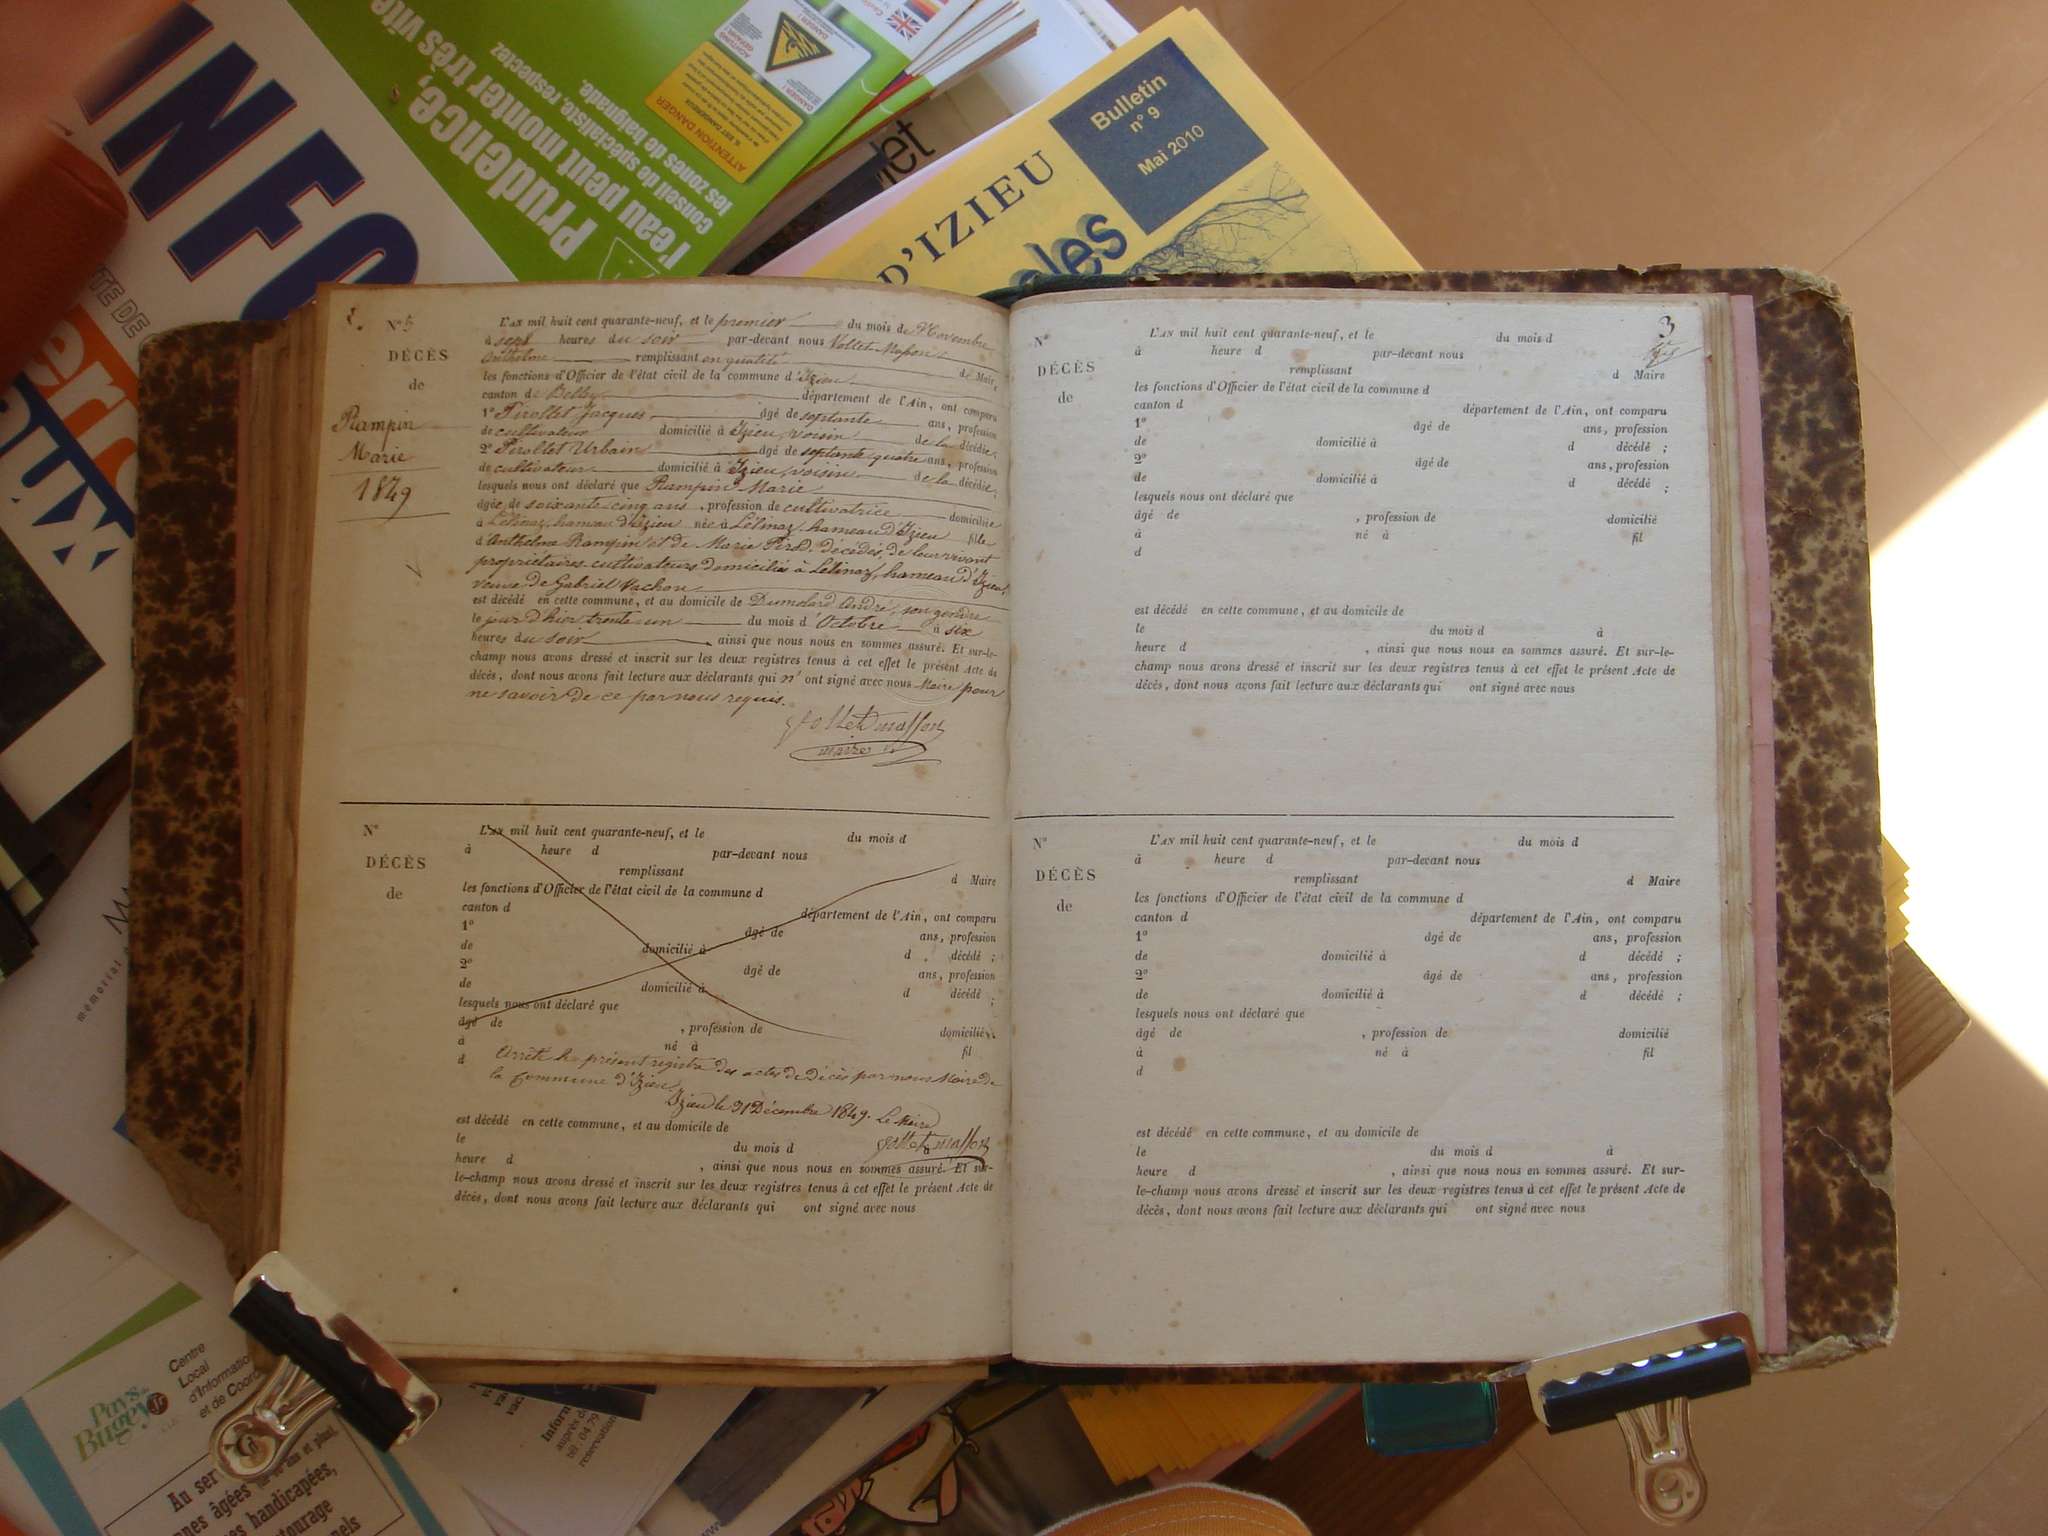 INFO
Prudence,
l'eau peut monter très vite
conseil de spécialiste, respectez
les zones de baignade.
ATTENTION DANGER
Bulletin
n° 9
Mai 2010
D'IZIEU
N° 5
DÉCÈS
de
Rampin
Marie
1849
L'AN mil huit cent quarante-neuf, et le premier du mois de Novembre
à sept heures du soir par-devant nous Vollet-Masson
Anthelme remplissant en qualité de Maire
les fonctions d'Officier de l'état civil de la commune d'Izieu
canton de Belley département de l'Ain, ont comparu
1° Pirollet Jacques âgé de septante ans, profession
de cultivateur domicilié à Izieu, voisin de la décédée;
2° Pirollet Urbain âgé de septante quatre ans, profession
de cultivateur domicilié à Izieu, voisin de la décédée;
lesquels nous ont déclaré que Rampin Marie
âgée de soixante cinq ans, profession de cultivatrice domiciliée
à Lélinaz, hameau d'Izieu née à Lélinaz, hameau d'Izieu fille
d'Anthelme Rampin et de Marie décédés, de leur vivant
propriétaires cultivateurs domiciliés à Lélinaz, hameau d'Izieu,
veuve de Gabriel Vachon
est décédé en cette commune, et au domicile de Dumolard André, son gendre
le jour d'hier trente-un du mois d'Octobre à six
heures du soir, ainsi que nous nous en sommes assuré. Et sur-le-
champ nous avons dressé et inscrit sur les deux registres tenus à cet effet le présent Acte de
décès, dont nous avons fait lecture aux déclarants qui n'ont signé avec nous Maire pour
ne savoir de ce par nous requis.
Vollet masson
maire
N°
DÉCÈS
de
L'AN mil huit cent quarante-neuf, et le du mois d
à heure d par-devant nous
remplissant d Maire
les fonctions d'Officier de l'état civil de la commune d
canton d département de l'Ain, ont comparu
1° âgé de ans, profession
de domicilié à d décédé ;
2° âgé de ans, profession
de domicilié à d décédé ;
lesquels nous ont déclaré que
âgé de , profession de domicilié
à né à fil
d Arrêté le présent registre des actes de décès par nous Maire de
la Commune d'Izieu.
Izieu le 31 Décembre 1849. Le Maire
est décédé en cette commune, et au domicile de
Vollet masson
le du mois d
heure d , ainsi que nous nous en sommes assuré. Et sur-
le-champ nous avons dressé et inscrit sur les deux registres tenus à cet effet le présent Acte de
décès, dont nous avons fait lecture aux déclarants qui ont signé avec nous
3
N°
DÉCÈS
de
L'AN mil huit cent quarante-neuf, et le du mois d
à heure d par-devant nous
remplissant d Maire
les fonctions d'Officier de l'état civil de la commune d
canton d département de l'Ain, ont comparu
1° âgé de ans, profession
de domicilié à d décédé ;
2° âgé de ans, profession
de domicilié à d décédé ;
lesquels nous ont déclaré que
âgé de , profession de domicilié
à né à fil
d
est décédé en cette commune, et au domicile de
le du mois d à
heure d , ainsi que nous nous en sommes assuré. Et sur-le-
champ nous avons dressé et inscrit sur les deux registres tenus à cet effet le présent Acte de
décès, dont nous avons fait lecture aux déclarants qui ont signé avec nous
N°
DÉCÈS
de
L'AN mil huit cent quarante-neuf, et le du mois d
à heure d par-devant nous
remplissant d Maire
les fonctions d'Officier de l'état civil de la commune d
canton d département de l'Ain, ont comparu
1° âgé de ans, profession
de domicilié à d décédé ;
2° âgé de ans, profession
de domicilié à d décédé ;
lesquels nous ont déclaré que
âgé de , profession de domicilié
à né à fil
d
est décédé en cette commune, et au domicile de
le du mois d à
heure d , ainsi que nous nous en sommes assuré. Et sur-
le-champ nous avons dressé et inscrit sur les deux registres tenus à cet effet le présent Acte de
décès, dont nous avons fait lecture aux déclarants qui ont signé avec nous
Pays de
Bugey
Centre
Local
d'Information
et de Coord